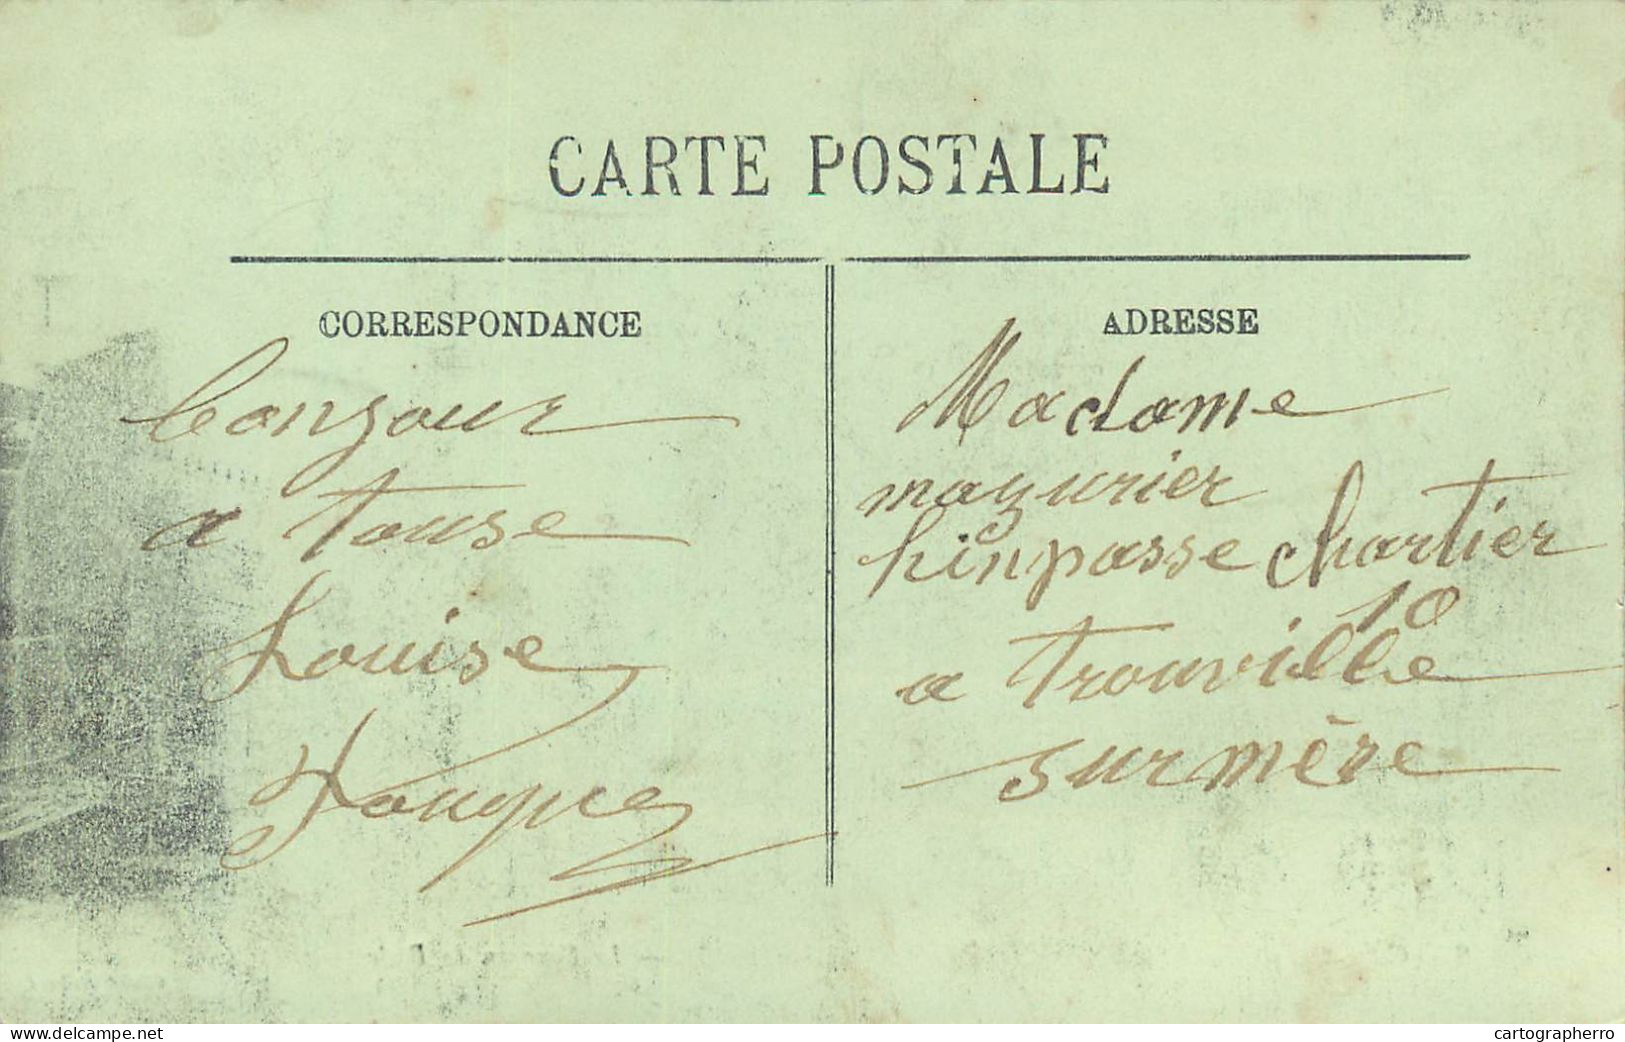 CARTE POSTALE
CORRESPONDANCE
bonjour
a touse
Louise
ADRESSE
Madame
mazurier
hinpasse chartier
10
a trouville
sur mère
www.delcampe.net
cartographerro